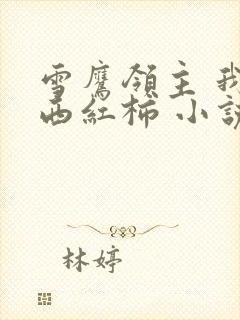 雪鷹領主 我
西紅柿 小說
林婷